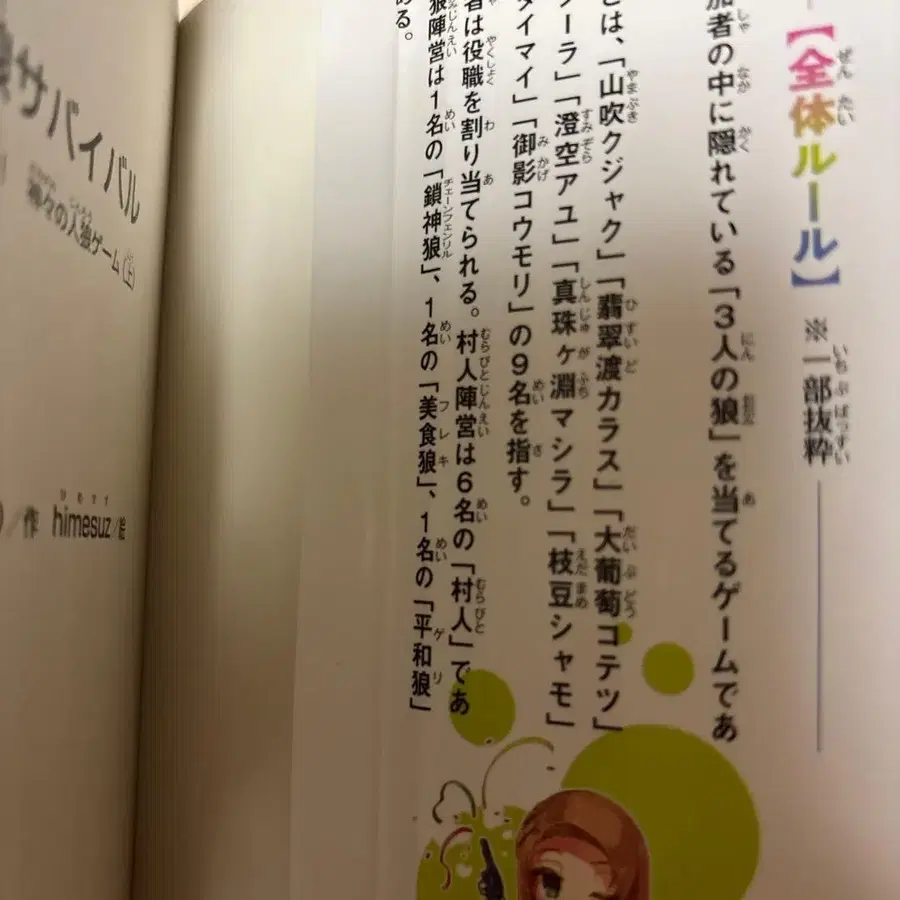 【全体ルール】 ※一部抜粋
加者の中に隠れている「3人の狼」を当てるゲームであ
とは、「山吹クジャク」「翡翠渡カラス」「大葡萄コテツ」
ーラ」「澄空アユ」「真珠ヶ淵マシラ」「枝豆シャモ」
タイマイ」「御影コウモリ」の9名を指す。
者は役職を割り当てられる。村人陣営は6名の「村人」であ
狼陣営は1名の「鎖神狼」、1名の「美食狼」、1名の「平和狼」
ある。
狼サバイバル
神々の人狼ゲーム(上)
/作 himesuz/絵